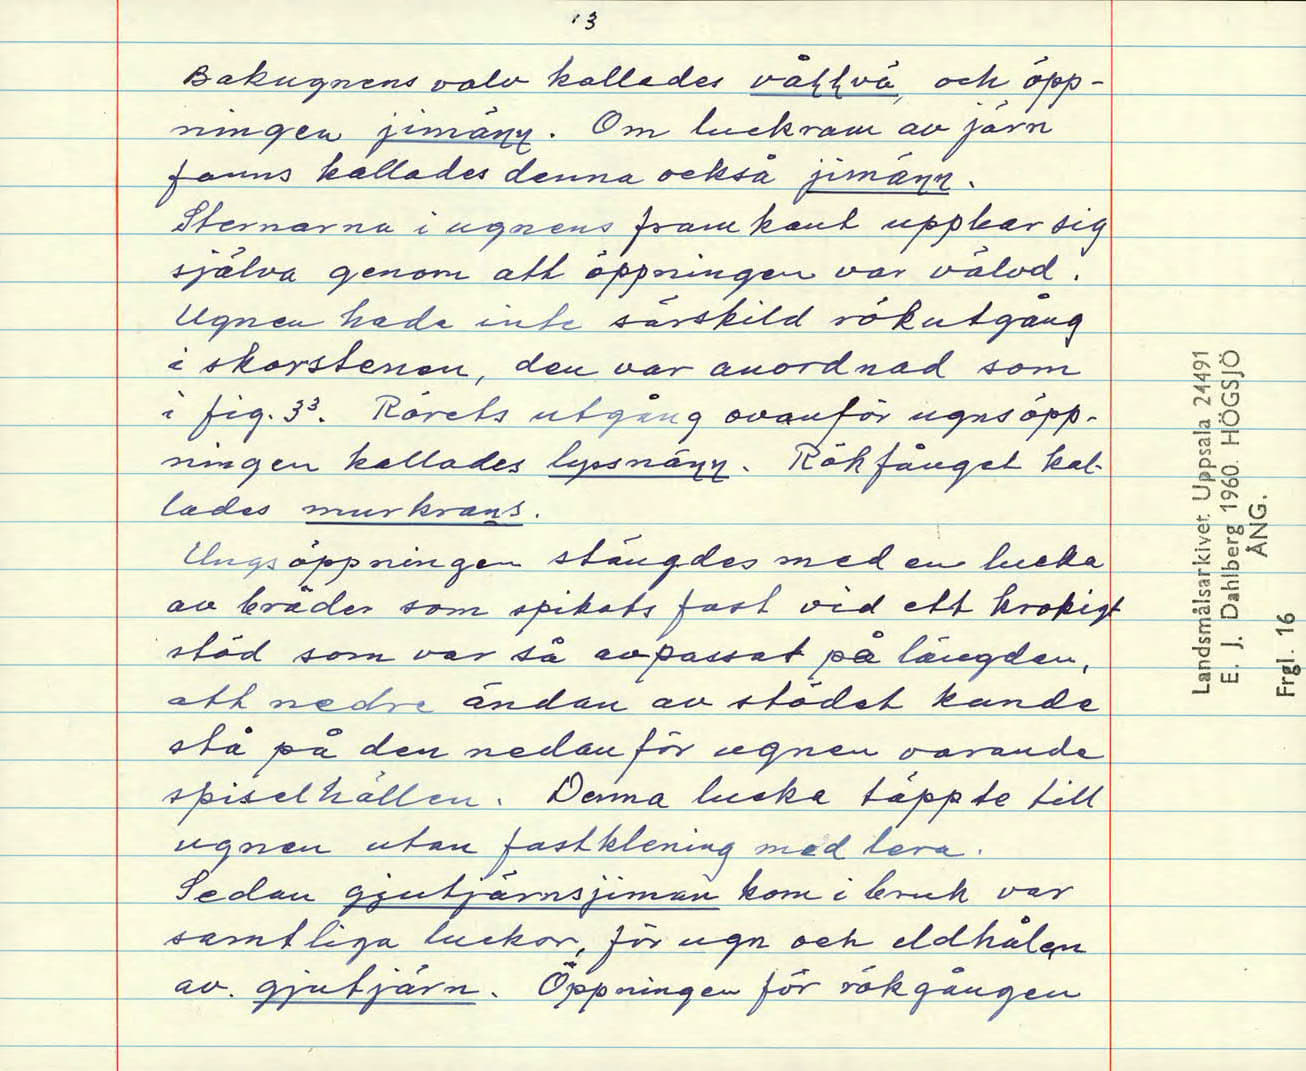 13
Bakugnens valv kallades våɫɫvä, och öpp-
ningen jimäŋŋ. Om luckram av järn
fanns kallades denna också jimäŋŋ.
Stenarna i ugnens framkant uppbar sig
själva genom att öppningen var välvd.
Ugnen hade inte särskild rökutgång
i skorstenen, den var anordnad som
i fig. 33. Rörets utgång ovanför ugnsöpp-
ningen kallades lyssnäŋŋ. Rökfånget kal-
lades murkrans.
Ungsöppningen stängdes med en lucka
av bräder som spikats fast vid ett krokigt
stöd som var så avpassat på längden,
att nedre ändan av stödet kunde
stå på den nedanför ugnen varande
spiselhällen. Denna lucka täppte till
ugnen utan fastklening med lera.
Sedan gjutjärnsjiman kom i bruk var
samtliga luckor, för ugn och eldhålen
av gjutjärn. Öppningen för rökgången
Landsmålsarkivet, Uppsala 24491
E. J. Dahlberg 1960. HÖGSJÖ
ÅNG.
Frgl. 16